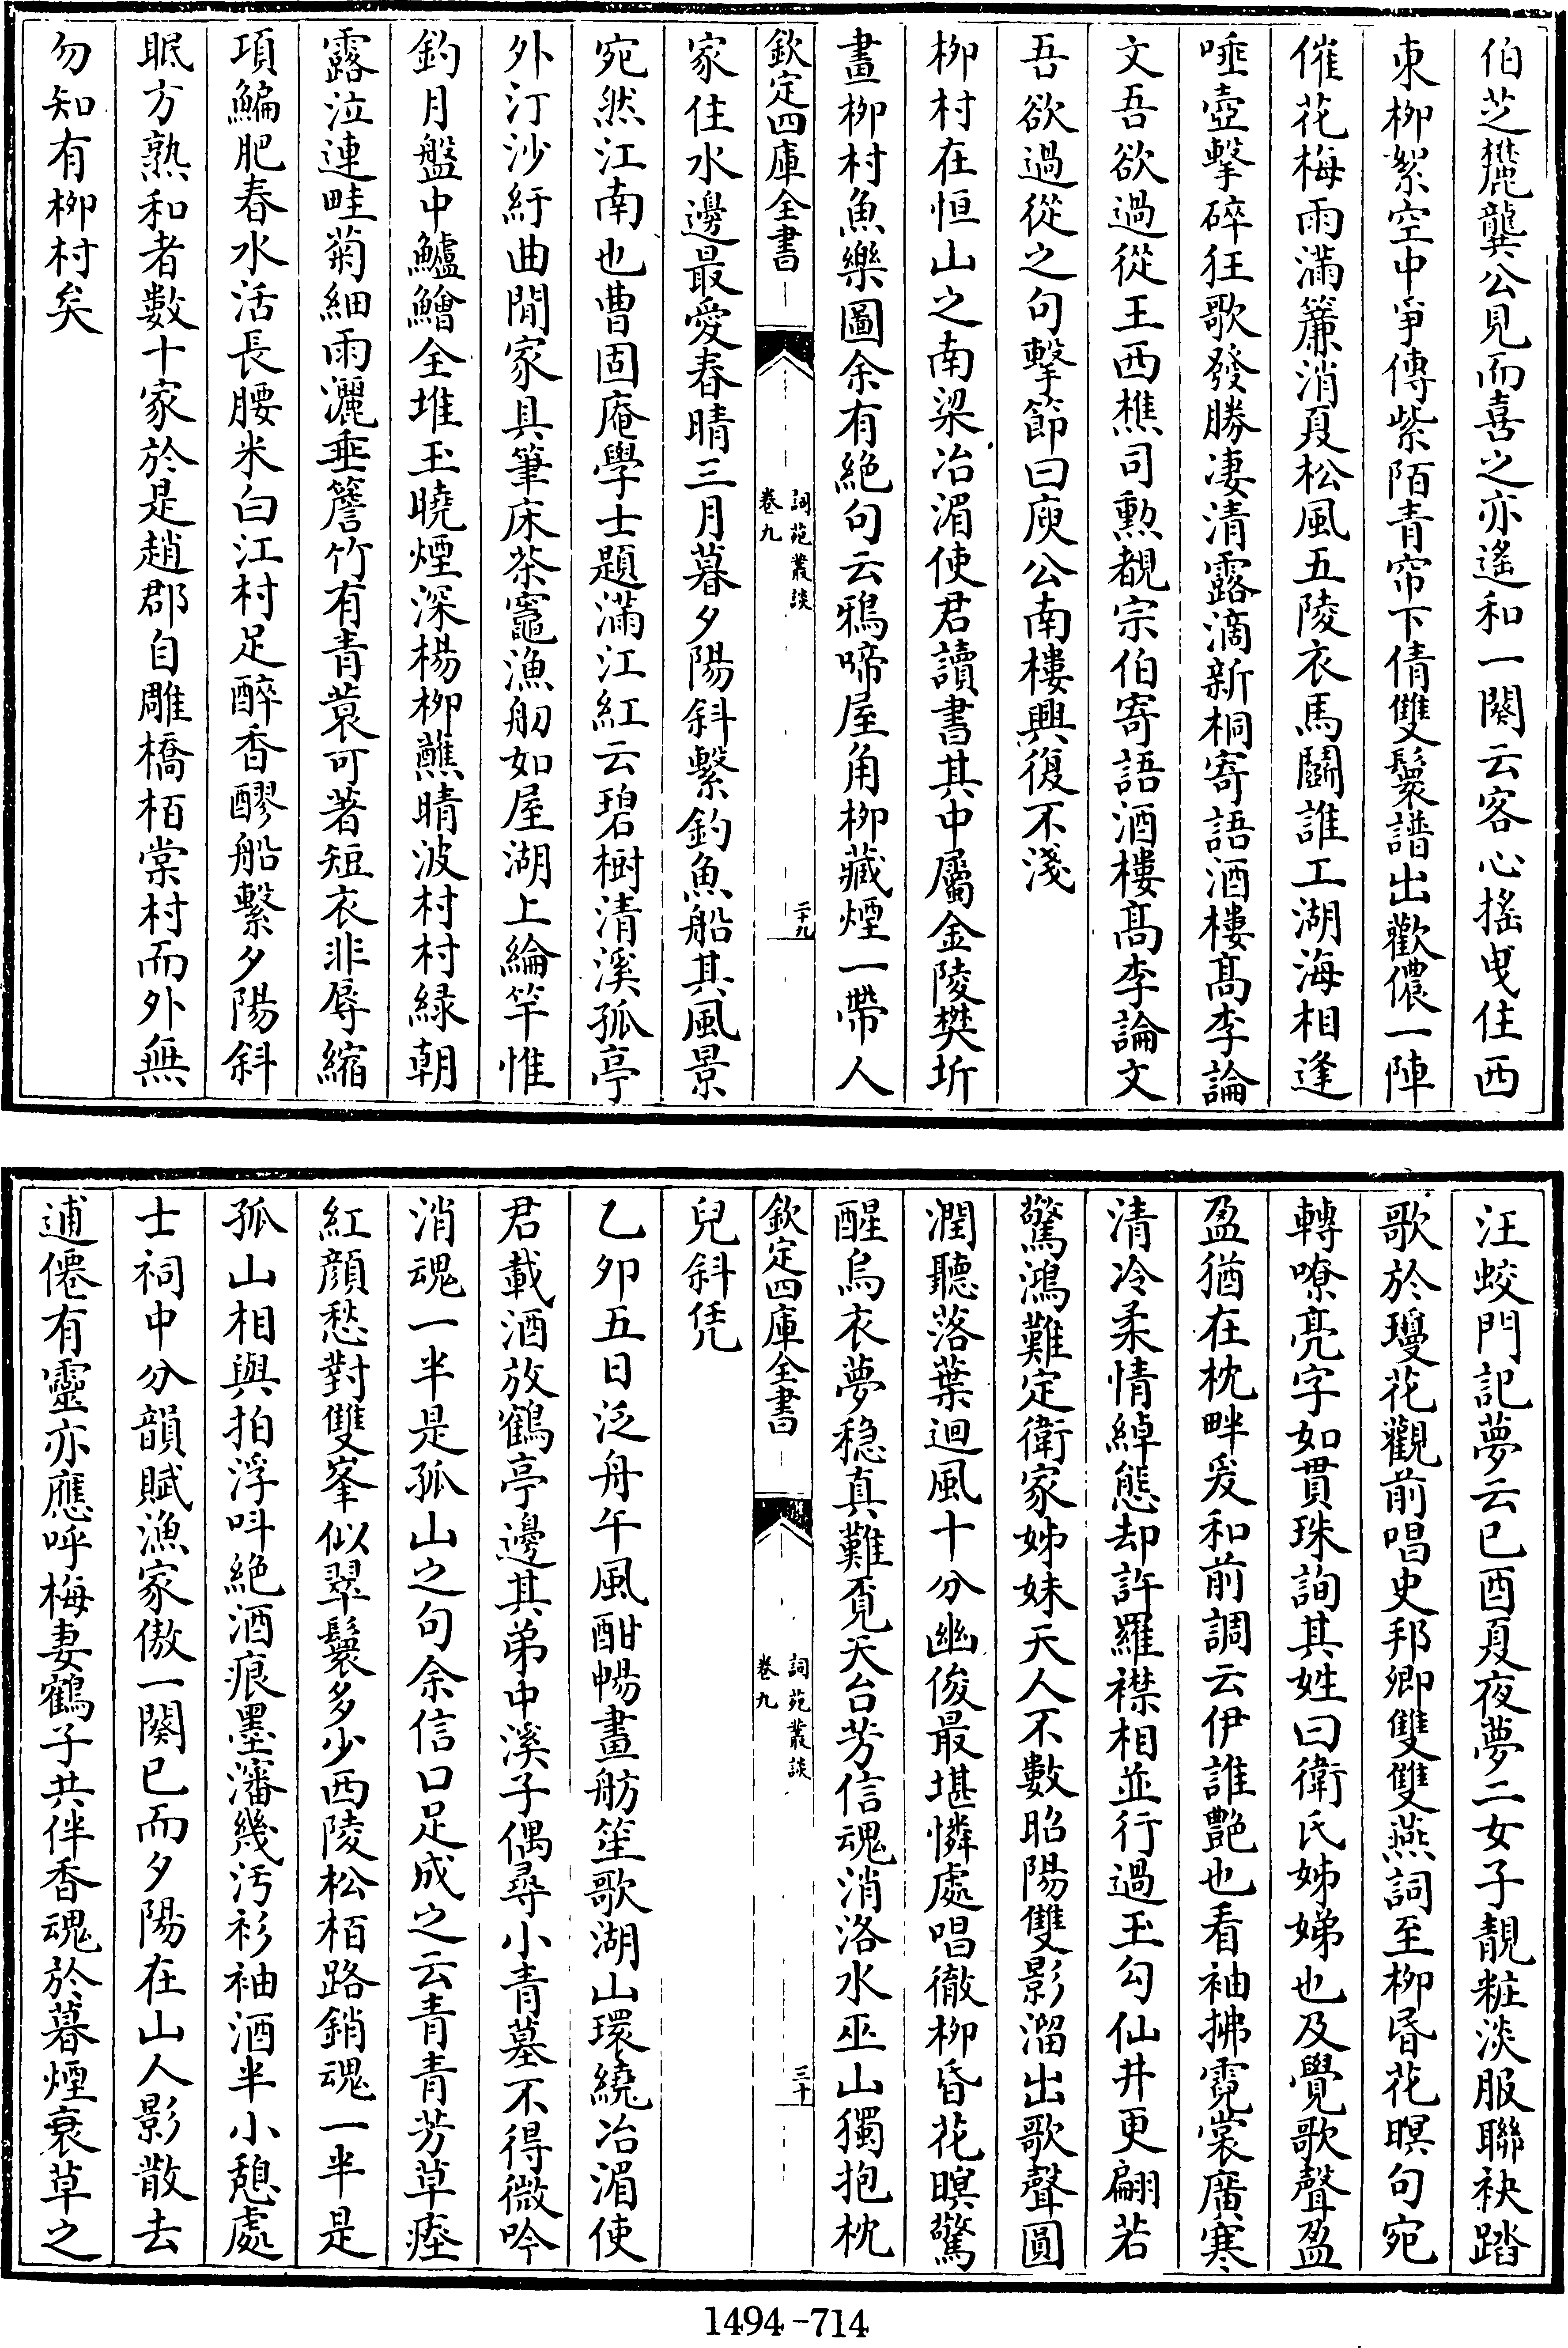 伯芝麓龔公見而喜之亦遙和一闋云客心搖曳住西
東柳絮空中爭傳紫陌青帘下倩雙鬟譜出歡儂一陣
催花梅雨滿簾消夏松風五陵衣馬鬬誰工湖海相逢
唾壺擊碎狂歌發勝凄清露滴新桐寄語酒樓高李論
文吾欲過從王西樵司勲覩宗伯寄語酒樓髙李論文
吾欲過從之句擊節曰庾公南樓興復不淺
柳村在恒山之南梁冶湄使君讀書其中屬金陵樊圻
畫柳村魚樂圖余有絶句云鴉啼屋角柳藏煙一帶人
欽定四庫全書
詞苑叢談
卷九
二十九
家住水邊最愛春晴三月暮夕陽斜繫釣魚船其風景
宛然江南也曹固庵學士題滿江紅云碧樹清溪孤亭
外汀沙紆曲閒家具筆床茶竈漁舠如屋湖上綸竿惟
釣月盤中鱸鱠全堆玉曉煙深楊柳蘸晴波村村緑朝
露泣連畦菊細雨灑垂簷竹有青蓑可著短衣非辱縮
項鯿肥春水活長腰米白江村足醉香醪船繫夕陽斜
眠方熟和者數十家於是趙郡自雕橋栢棠村而外無
勿知有柳村矣
汪蛟門記夢云已酉夏夜夢二女子靚粧淡服聯袂踏
歌於瓊花觀前唱史邦卿雙雙燕詞至柳昏花暝句宛
轉嘹亮字如貫珠詢其姓曰衛氏姊娣也及覺歌聲盈
盈猶在枕畔爰和前調云伊誰艶也看袖拂霓裳廣寒
清冷柔情綽態却許羅襟相並行過玉勾仙井更翩若
驚鴻難定衛家姊妹天人不數昭陽雙影溜出歌聲圓
潤聽落葉迴風十分幽俊最堪憐處唱徹柳昏花暝驚
醒烏衣夢穏真難覔天台芳信魂消洛水巫山獨抱枕
欽定四庫全書
詞苑叢談
卷九
三十
兒斜凭
乙夘五日泛舟午風酣暢畫舫笙歌湖山環繞冶湄使
君載酒放鶴亭邊其弟中溪子偶尋小青墓不得微吟
消魂一半是孤山之句余信口足成之云青青芳草瘞
紅顔愁對雙峯似翠鬟多少西陵松栢路銷魂一半是
孤山相與拍浮呌絶酒痕墨瀋幾汚衫袖酒半小憩處
士祠中分韻賦漁家傲一闋已而夕陽在山人影散去
逋僊有靈亦應呼梅妻鶴子共伴香魂於暮煙衰草之
1494-714